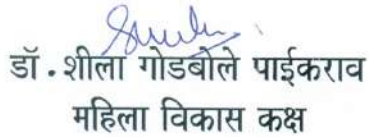 डॉ. शीला गोडबोले पाईकराव
महिला विकास कक्ष